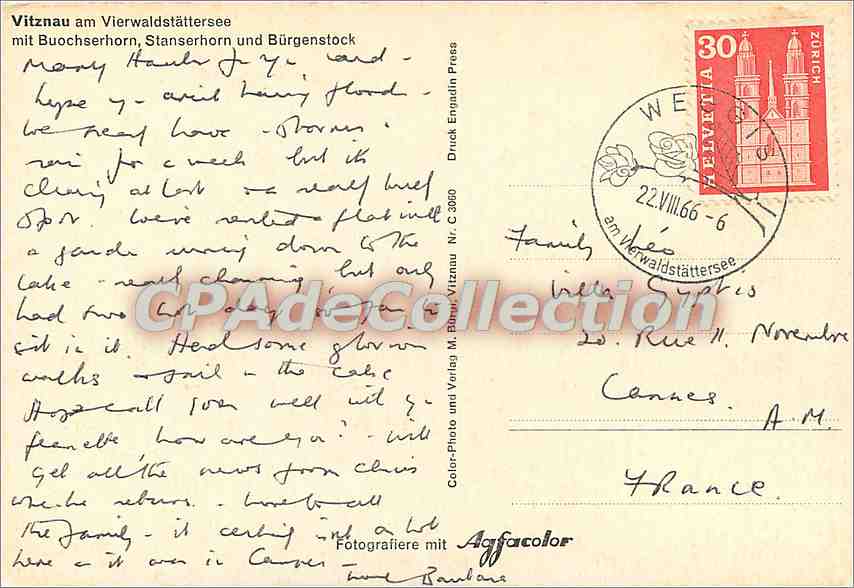 Vitznau am Vierwaldstättersee
mit Buochserhorn, Stanserhorn und Bürgenstock
Many thanks for yr card -
hope y - aren't being flood -
We really have - storms &
rain for a week but it's
clearing at last - a really
spot. We've rented a flat with
a garden running down to the
lake - really charming, but only
had two hot days so far to
sit in it. Had some glorious
walks & sail on the lake
Hope all goes well with y -
how are you? - will
get all the news from Chris
when he returns - love to all
the family - it certainly isn't as hot
here as it was in Cannes -
love Barbara
Druck Engadin Press
Color-Photo und Verlag M. Bürgi, Vitznau Nr. C 3060
Fotografiere mit Agfacolor
30
HELVETIA
ZÜRICH
WEGGIS
22.VIII.66-6
am Vierwaldstättersee
Family Léo
Villa Gyptis
20. Rue 11. Novembre
Cannes.
A.M.
France.
CPAdeCollection